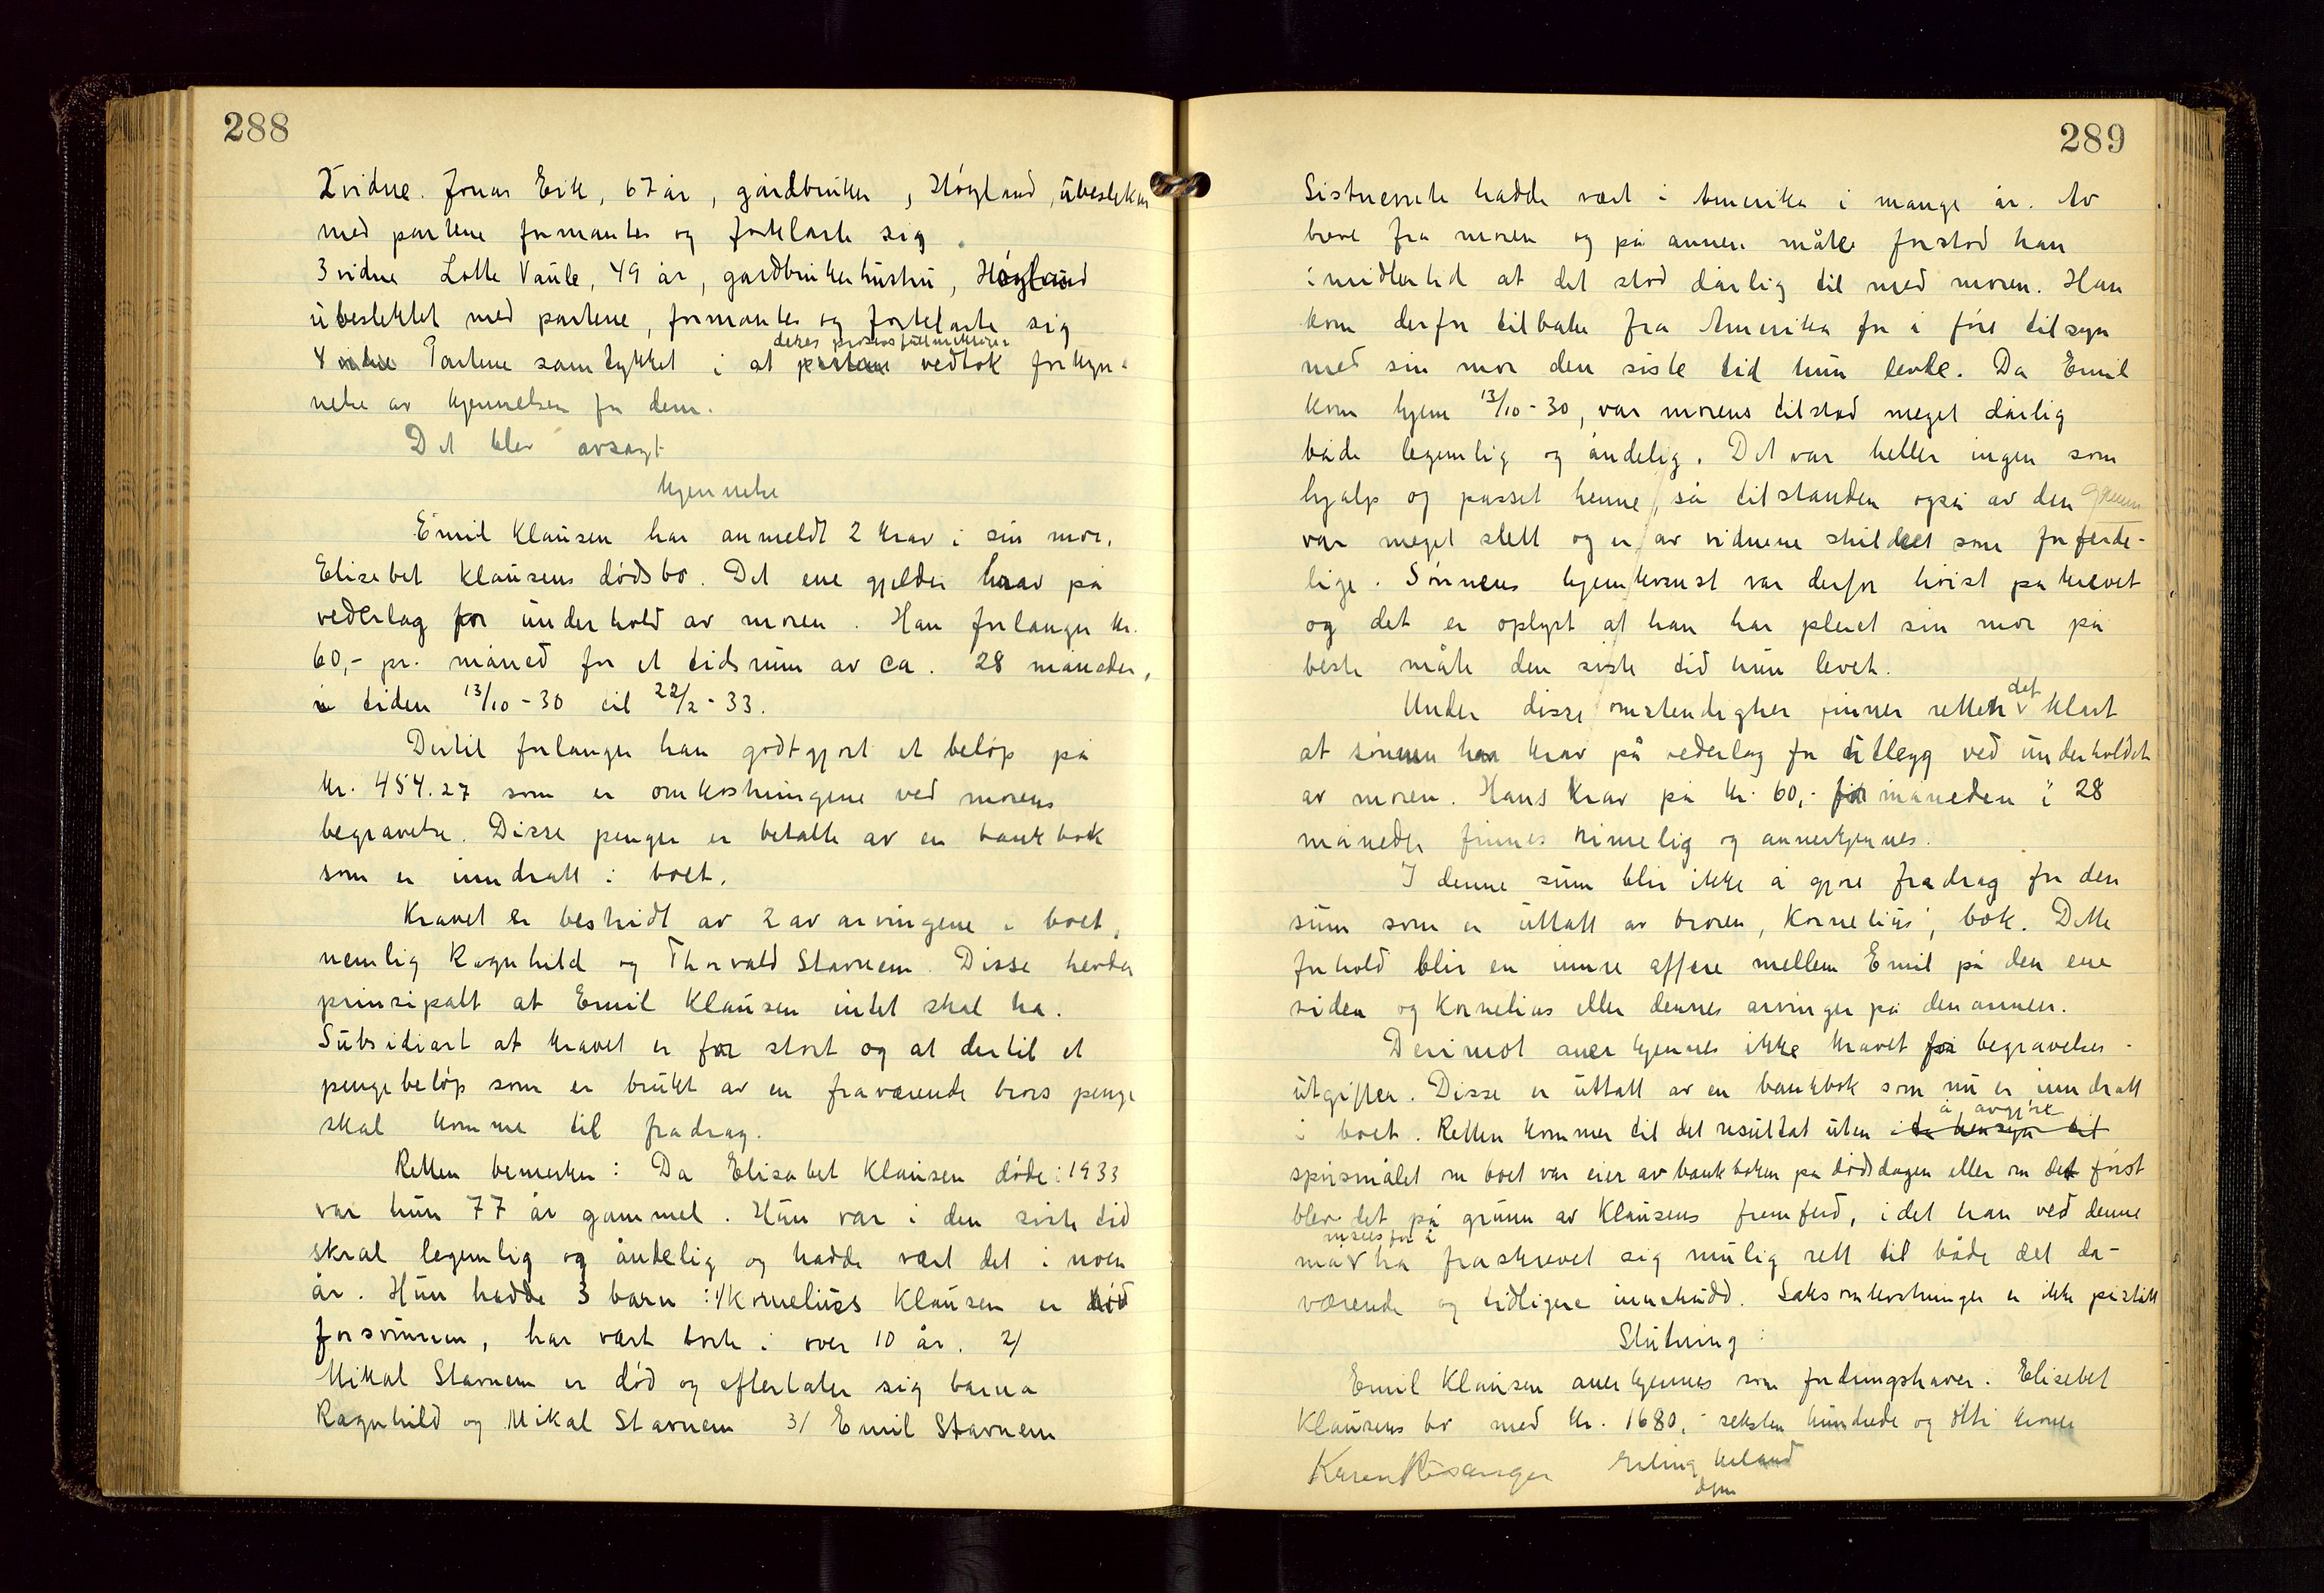 288
2 vidne. Jonas Eik, 67 år, gårdbruker, Høyland, ubeslektet
med partene formantes og forklarte sig.
3 vidne Lotte Vaule, 49 år, gardbrukerhustru, Høyland
ubeslektet med partene, formantes og forklarte sig
deres prosessfullmektiger
4 vidne Partene samtykket i at partene vedtok forkyn-
nelse av kjennelsen for dem.
Det blev avsagt
kjennelse
Emil Klausen har anmeldt 2 krav i sin mor,
Elisebet Klausens dødsbo. Det ene gjelder krav på
vederlag for underhold av moren. Han forlanger kr.
60,- pr. måned for et tidsrum av ca. 28 måneder,
i tiden 13/10-30 til 22/2-33.
Dertil forlanger han godtgjort et beløp på
kr. 454.27 som er omkostningene ved morens
begravelse. Disse penger er betalte av en bankbok
som er inndratt i boet.
Kravet er bestridt av 2 av arvingene i boet,
nemlig Ragnhild og Thorvald Stavnem. Disse hevder
prinsipalt at Emil Klausen intet skal ha.
Subsidiært at kravet er for stort og at dertil et
pengebeløp som er brukt av en fraværende brors penge
skal komme til fradrag.
Retten bemerker: Da Elisabet Klausen døde i 1933
var hun 77 år gammel. Hun var i den siste tid
skral legemlig og åndelig og hadde vært det i noen
år. Hun hadde 3 barn: 1/ Kornelius Klausen er død
forsvunnen, har vært borte i over 10 år. 2/
Mikal Stavnem er død og efterlater sig barna
Ragnhild og Mikal Stavnem 3/ Emil Stavnem
289
Sistnevnte hadde vært i Amerika i mange år. Av
breve fra moren og på annen måte forstod han
imidlertid at det stod dårlig til med moren. Han
kom derfor tilbake fra Amerika for å føre tilsyn
med sin mor den siste tid hun levde. Da Emil
kom hjem 13/10-30, var morens tilstand meget dårlig
både legemlig og åndelig. Det var heller ingen som
hjalp og passet henne, så tilstanden også av den grunn
var meget slett og er av vidnene skildret som forferde-
lige. Sønnens hjemkomst var derfor høist påkrevet
og det er oplyst at han har pleiet sin mor på
beste måte den siste tid hun levet.
det
Under disse omstendigheter finner retten klart
at sønnen har krav på vederlag for utlegg ved underholdet
av moren. Hans krav på kr. 60,- for måneden i 28
måneder finnes rimelig og annerkjennes.
I denne sum blir ikke å gjøre fradrag for den
sum som er uttatt av broren, Kornelius', bok. Dette
forhold blir en innre affære mellem Emil på den ene
siden og Kornelius eller dennes arvinger på den annen.
Derimot anerkjennes ikke kravet for begravelses-
utgifter. Disse er uttatt av en bankbok som nu er inndratt
å avgjøre
i boet. Retten kommer til det resultat uten hensyn til
spørsmålet om boet var eier av bankboken på dødsdagen eller om det først
blev det på grunn av Klausens fremferd, idet han ved denne
ansees for å
må ha fraskrevet sig mulig rett til både det da-
værende og tidligere innskudd. Saksomkostninger er ikke påstått
Slutning:
Emil Klausen anerkjennes som fordringshaver i Elisebet
Klausens bo med kr. 1680,- seksten hundrede og åtti kroner
Karen Risanger Erling
dfm